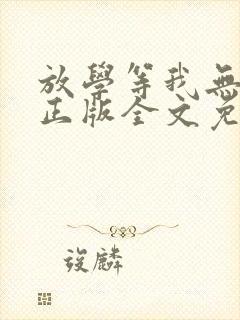 放學等我無
正版全文免
後麟